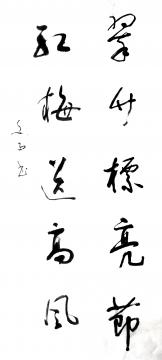 翠竹標亮節
紅梅送高風